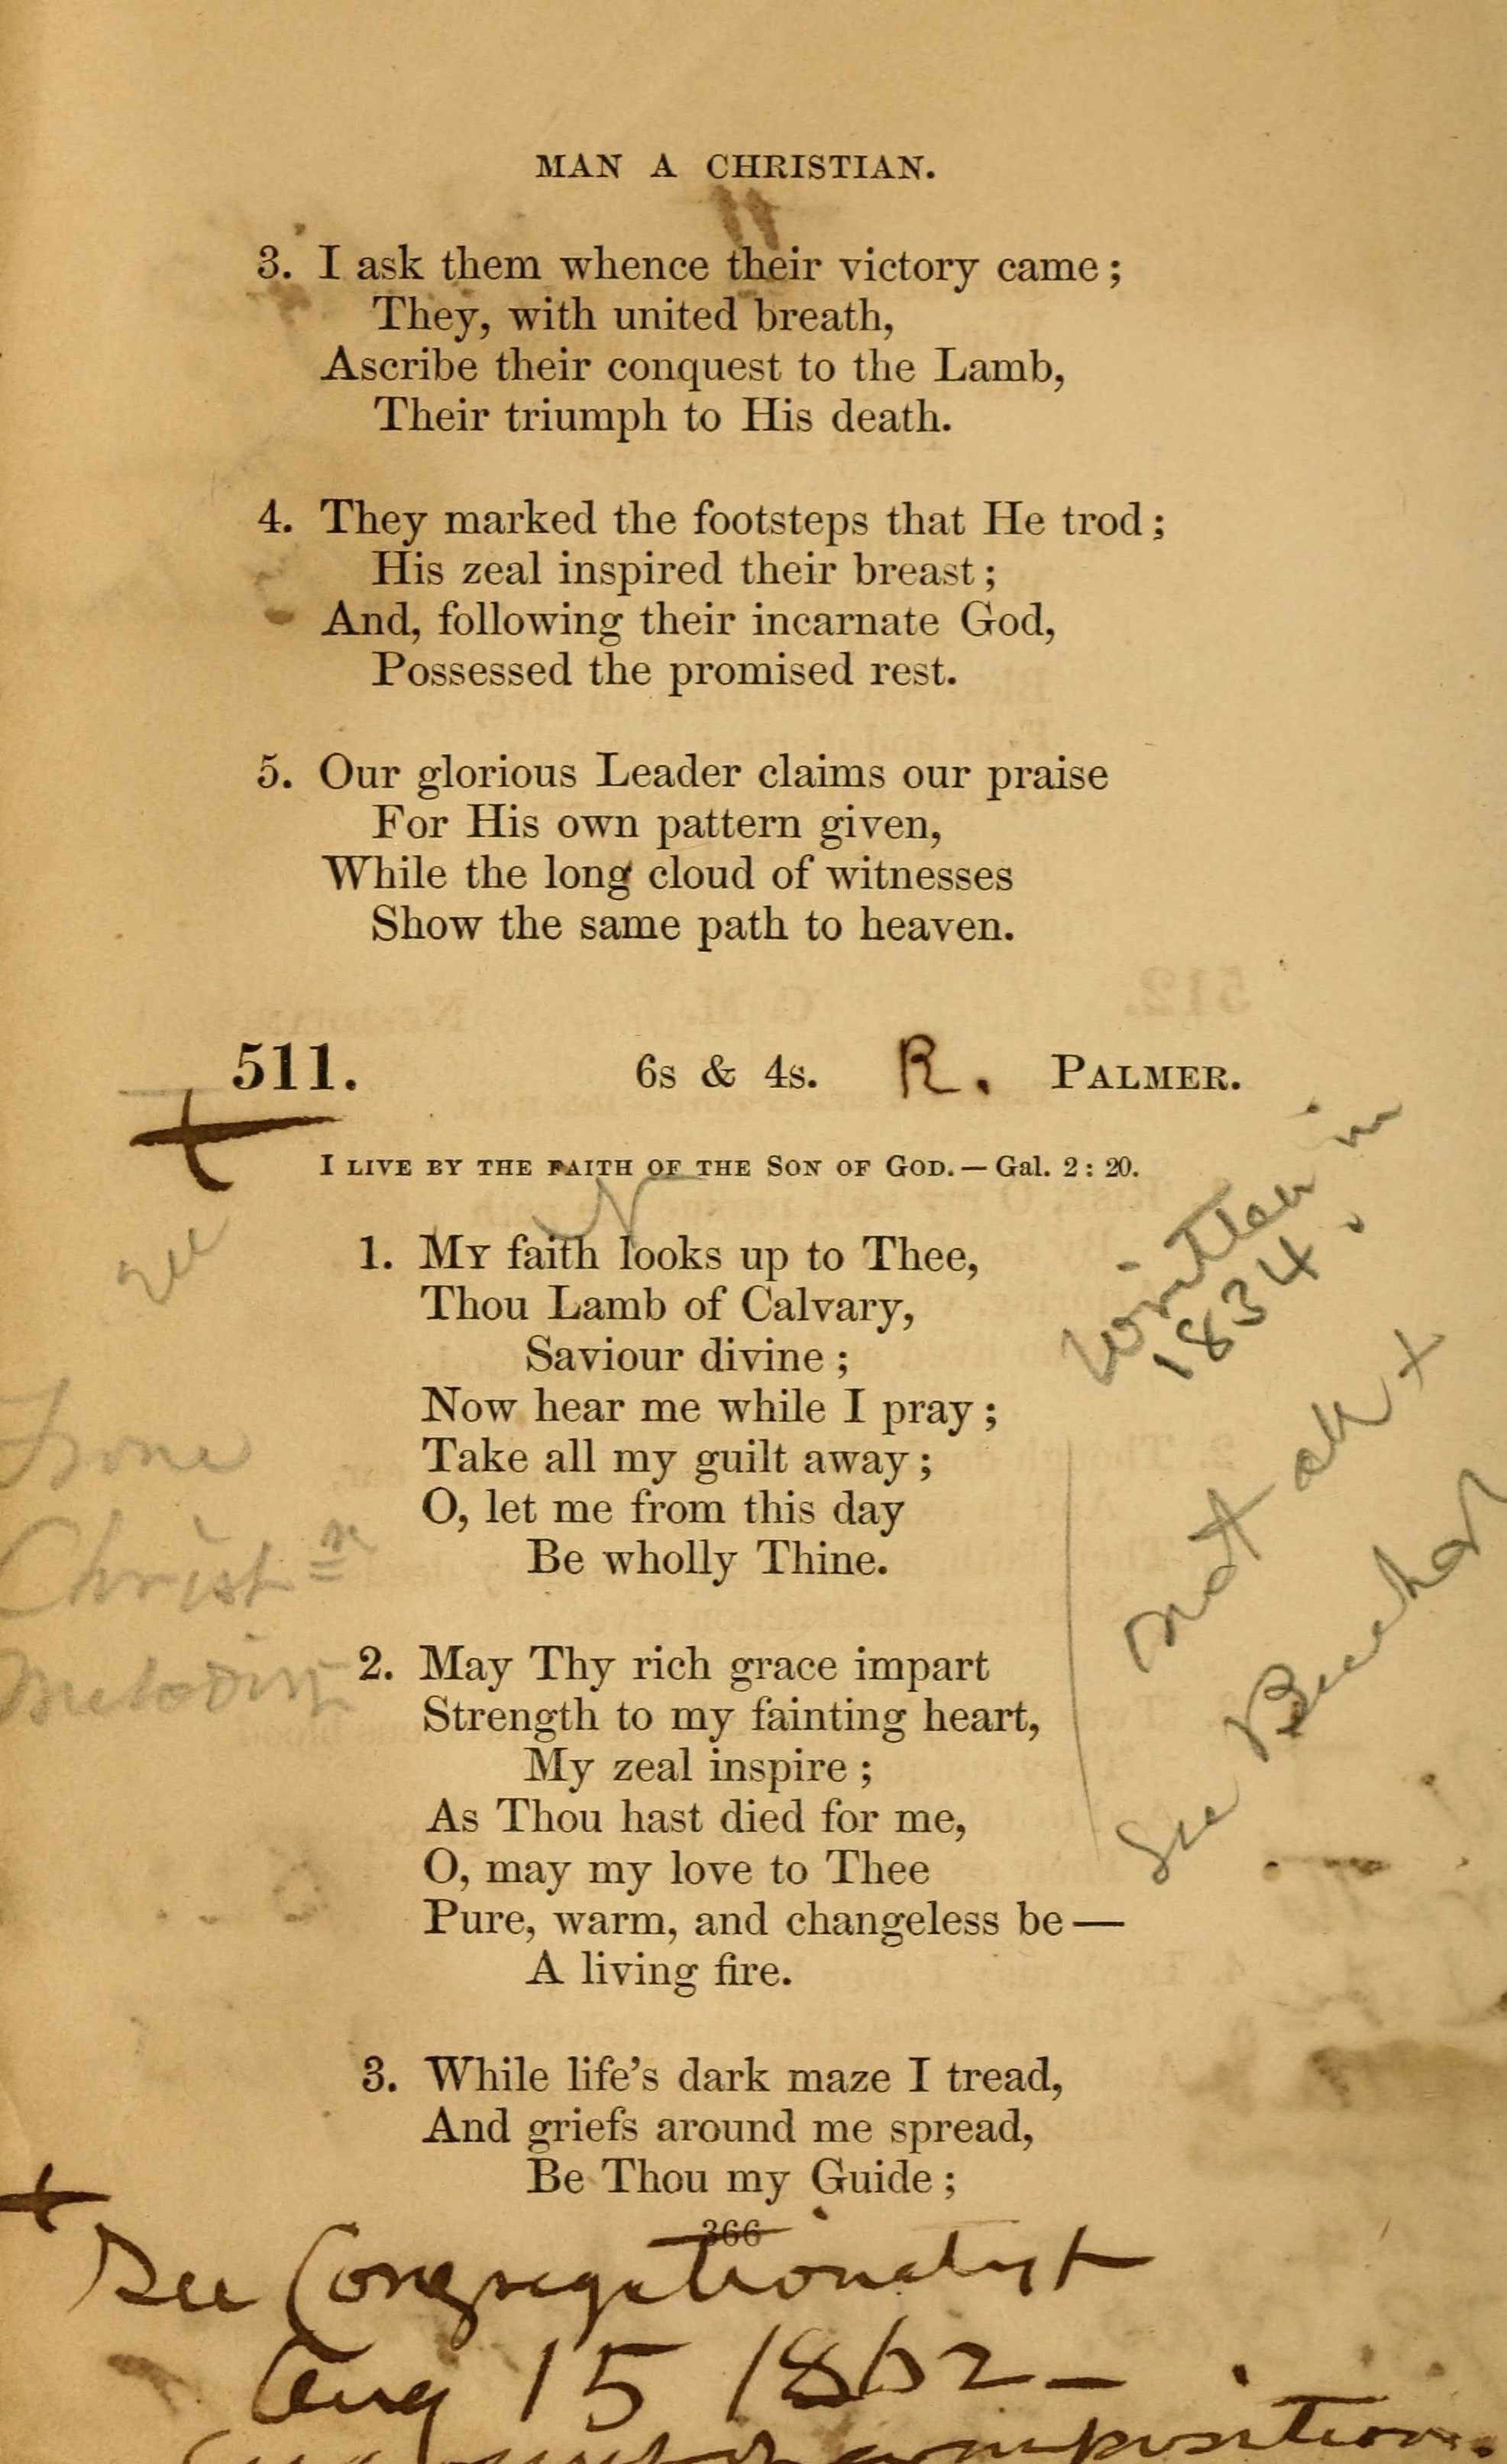 MAN A CHRISTIAN.
3. I ask them whence their victory came;
They, with united breath,
Ascribe their conquest to the Lamb,
Their triumph to His death.
4. They marked the footsteps that He trod;
His zeal inspired their breast;
And, following their incarnate God,
Possessed the promised rest.
5. Our glorious Leader claims our praise
For His own pattern given,
While the long cloud of witnesses
Show the same path to heaven.
511. 6s & 4s. R. PALMER.
I LIVE BY THE FAITH OF THE SON OF GOD. — Gal. 2: 20.
1. MY faith looks up to Thee,
Thou Lamb of Calvary,
Saviour divine;
Now hear me while I pray;
Take all my guilt away;
O, let me from this day
Be wholly Thine.
Written in
1834.
not
See
See
From
Christn
Melodist
2. May Thy rich grace impart
Strength to my fainting heart,
My zeal inspire;
As Thou hast died for me,
O, may my love to Thee
Pure, warm, and changeless be —
A living fire.
3. While life's dark maze I tread,
And griefs around me spread,
Be Thou my Guide;
366
+ See Congregationalist
Aug 15 1862 —
composition.